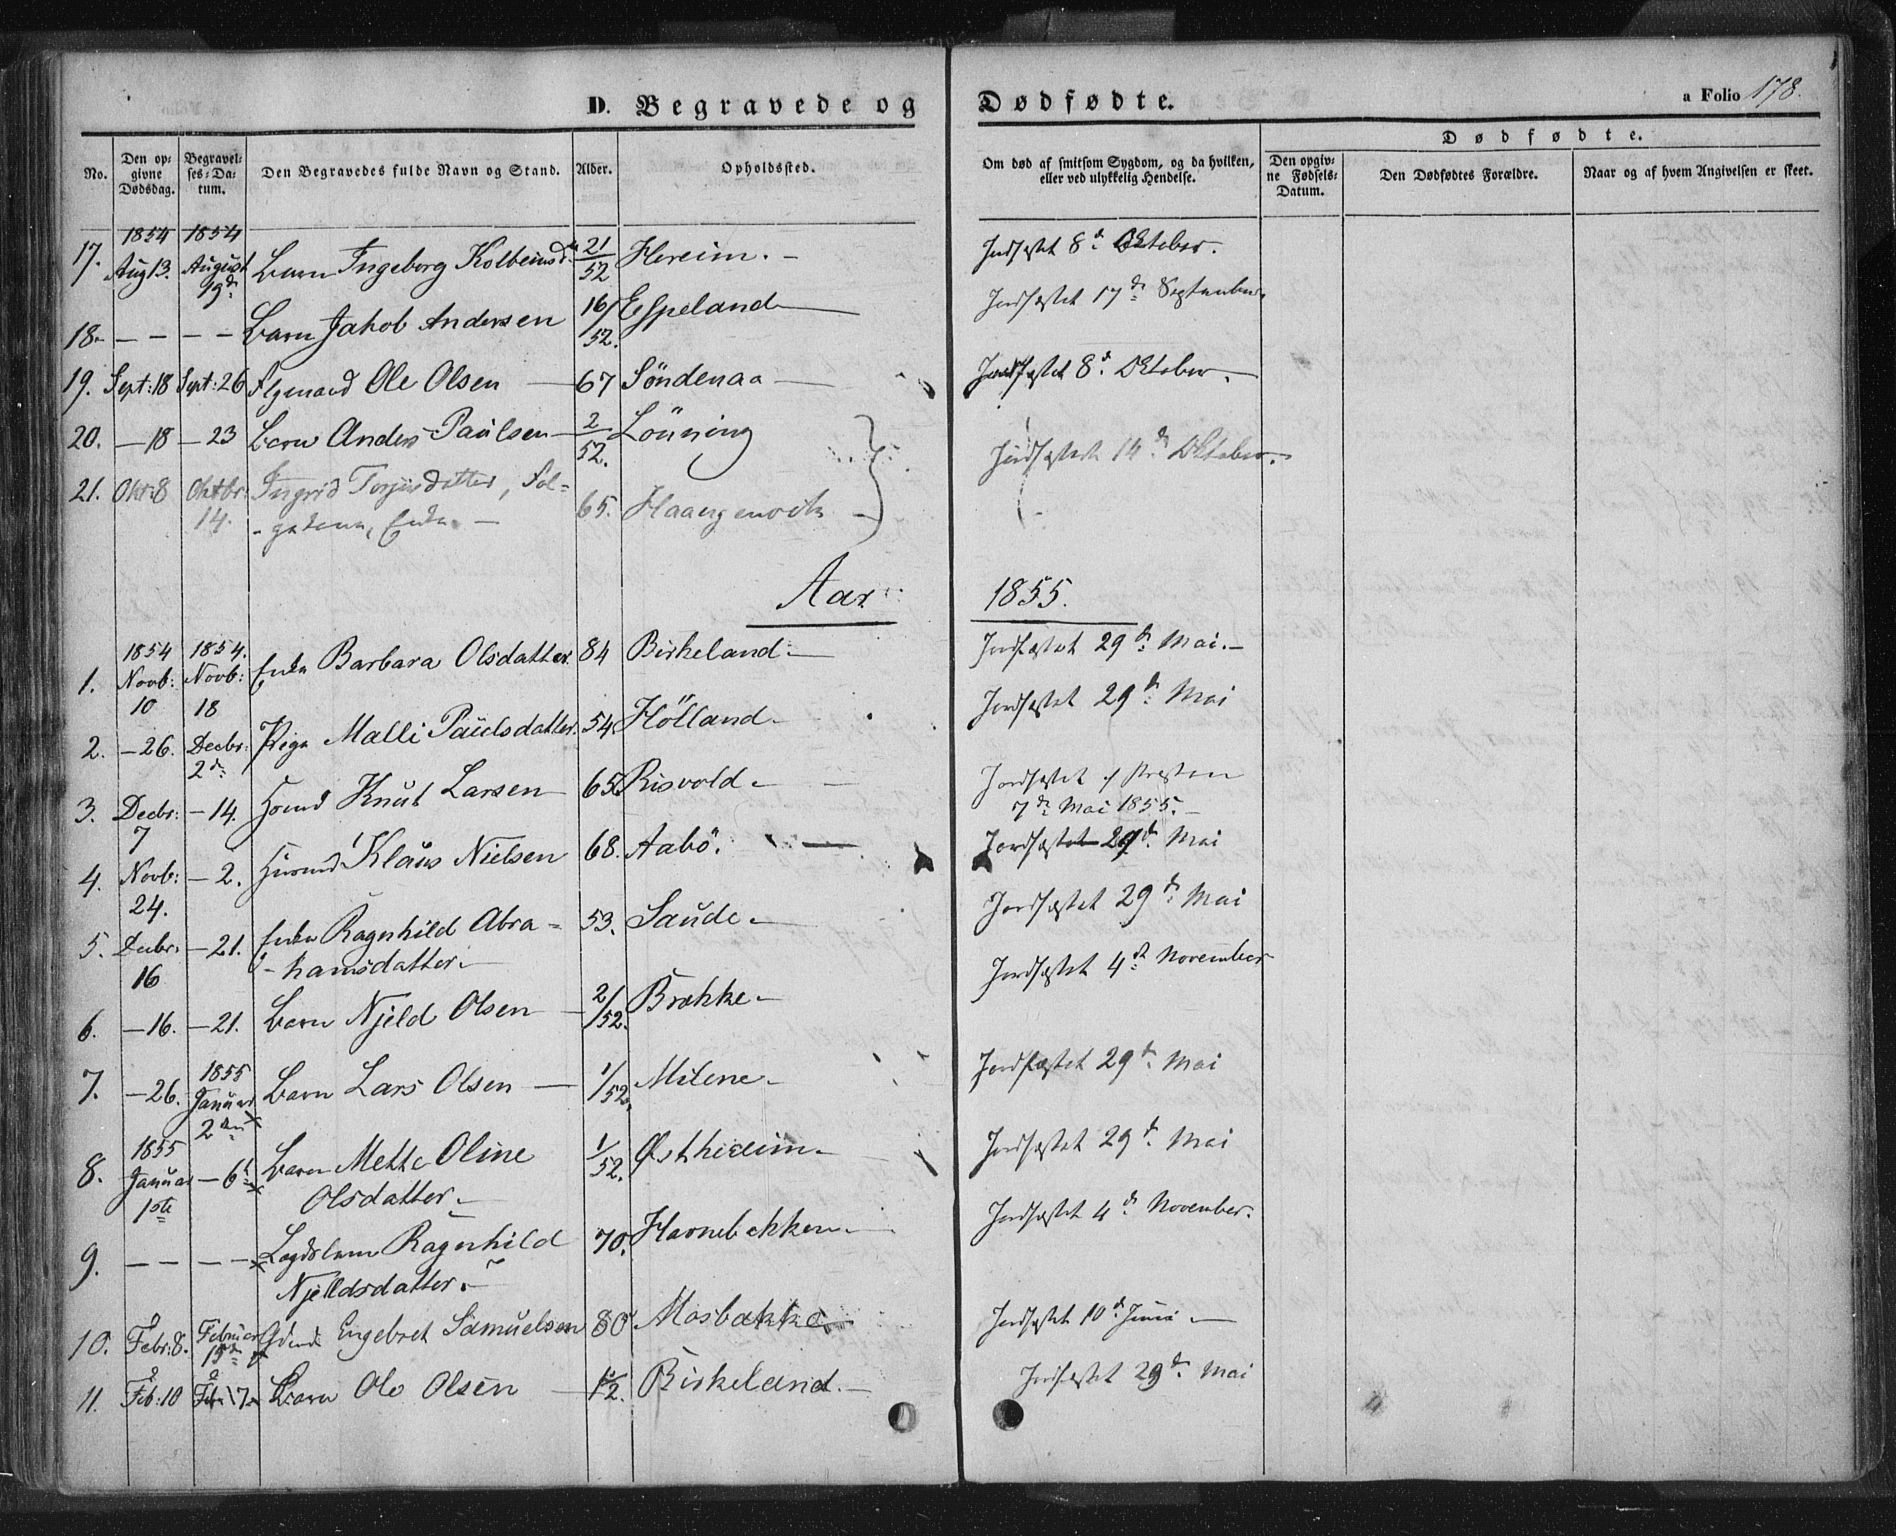 D. Begravede og Dødfødte.
a Folio 178.
No.
Den opgivne Dødsdag.
Begravelses-Datum.
Den Begravedes fulde Navn og Stand.
Alder.
Opholdssted.
Om død af smitsom Sygdom, og da hvilken, eller ved ulykkelig Hendelse.
Dødfødte.
Den opgivne Fødsels-Datum.
Den Dødfødtes Forældre.
Naar og af hvem Angivelsen er skeet.
1854 1854
17. Aug 13. August 19d: Barn Ingeborg Kolbeinsd. 21/52 Hereim. – Jordfæstet 8d: Oktober.
18. – – – – Barn Jakob Andersen 16/52. Espeland – Jordfæstet 17d: September.
19. Sept: 18 Sept: 26 Ole Olsen – 67 Söndenaa – Jordfæstet 8d: Oktober. –
20. – 18 – 23 Barn Anders Paulsen – 2/52. Lönning
Jordfæstede 14d: Oktober.
21. Okt: 8 Oktbr: 14. Ingrid Torjusdatter, Fol-
- gekone, Enke. – 65. Haaugenvik –
Aar 1855.
1854 1854.
1. Novb: 10 Novb: 18 Enke Barbara Olsdatter. 84 Birkeland – Jordfæstet 29d: Mai. –
2. – 26. Decbr: 2d: Pige Malli Paulsdatter. 54 Hölland – Jordfæstet 29d: Mai
3. Decbr: 7 – 14. Knut Larsen – 65 Risvold – Jordfæstet af Presten
7d: Mai 1855. –
4. Novb: 24. – 2. Klaus Nielsen 68. Aabö. – Jordfæstet 29d: Mai
5. Decbr: 16 – 21. Enke Ragnhild Abra-
- hamsdatter. – 53. Saude – Jordfæstet 29d: Mai
6. – 16. – 21. Barn Njeld Olsen – 2/52. Brække – Jordfæstet 4d: November
7. – 26. 1855 Januar 2den Barn Lars Olsen – 1/52. Milene – Jordfæstet 29d: Mai
1855
8. Januar 1ste – 6t Barn Mette Oline
Olsdatter – 1/52. Østhieim – Jordfæstet 29d: Mai
9. – – – – Lægdslem Ragnhild
Njelldsdatter. – 70. Havnebækken – Jordfæstet 4d: November.
10. Febr: 8. Februar 15d: Engebret Samuelsen 80 Mosbække – Jordfæstet 10d: Juni –
11. Feb: 10 Feb: 17 Barn Ole Olsen – Birkeland. – Jordfæstet 29d: Mai